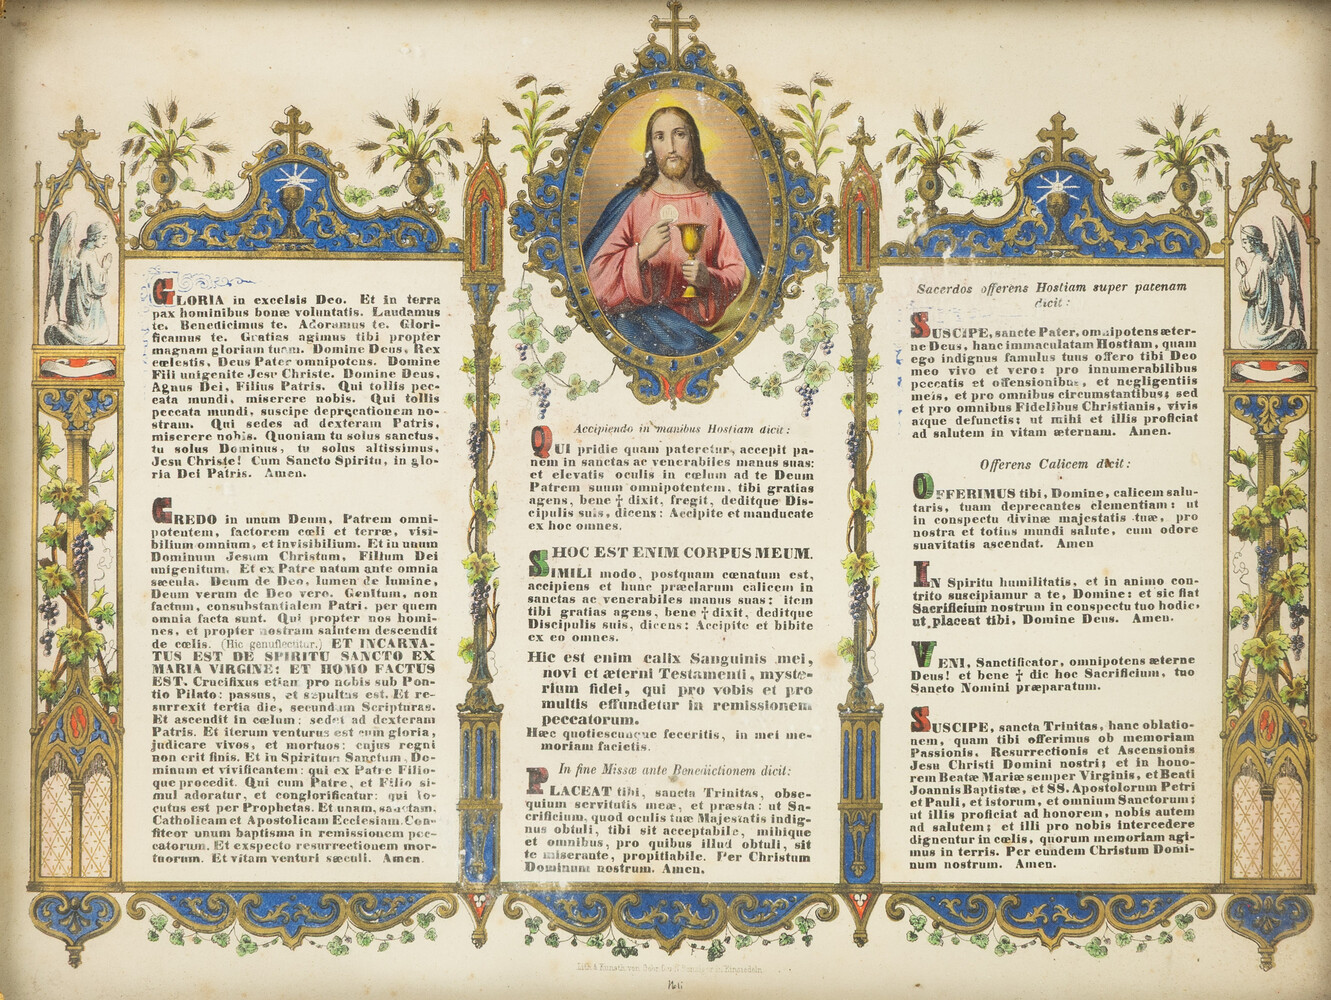 GLORIA in excelsis Deo. Et in terra
pax hominibus bonæ voluntatis. Laudamus
te. Benedicimus te. Adoramus te. Glori-
ficamus te. Gratias agimus tibi propter
magnam gloriam tuam. Domine Deus, Rex
cœlestis, Deus Pater omnipotens. Domine
Fili unigenite Jesu Christe. Domine Deus,
Agnus Dei, Filius Patris. Qui tollis pec-
cata mundi, miserere nobis. Qui tollis
peccata mundi, suscipe deprecationem no-
stram. Qui sedes ad dexteram Patris,
miserere nobis. Quoniam tu solus sanctus,
tu solus Dominus, tu solus altissimus,
Jesu Christe! Cum Sancto Spiritu, in glo-
ria Dei Patris. Amen.
CREDO in unum Deum, Patrem omni-
potentem, factorem cœli et terræ, visi-
bilium omnium, et invisibilium. Et in unum
Dominum Jesum Christum, Filium Dei
unigenitum. Et ex Patre natum ante omnia
sæcula. Deum de Deo, lumen de lumine,
Deum verum de Deo vero. Genitum, non
factum, consubstantialem Patri, per quem
omnia facta sunt. Qui propter nos homi-
nes, et propter nostram salutem descendit
de cœlis. (Hic genuflectitur.) ET INCARNA-
TUS EST DE SPIRITU SANCTO EX
MARIA VIRGINE: ET HOMO FACTUS
EST. Crucifixus etiam pro nobis sub Pon-
tio Pilato: passus, et sepultus est. Et re-
surrexit tertia die, secundum Scripturas.
Et ascendit in cœlum: sedet ad dexteram
Patris. Et iterum venturus est cum gloria,
judicare vivos, et mortuos: cujus regni
non erit finis. Et in Spiritum Sanctum, Do-
minum et vivificantem: qui ex Patre Filio-
que procedit. Qui cum Patre, et Filio si-
mul adoratur, et conglorificatur: qui lo-
cutus est per Prophetas. Et unam, sanctam,
Catholicam et Apostolicam Ecclesiam. Con-
fiteor unum baptisma in remissionem pec-
catorum. Et exspecto resurrectionem mor-
tuorum. Et vitam venturi sæculi. Amen.
Accipiendo in manibus Hostiam dicit:
QUI pridie quam pateretur, accepit pa-
nem in sanctas ac venerabiles manus suas:
et elevatis oculis in cœlum ad te Deum
Patrem suum omnipotentem, tibi gratias
agens, bene † dixit, fregit, deditque Dis-
cipulis suis, dicens: Accipite et manducate
ex hoc omnes.
HOC EST ENIM CORPUS MEUM.
SIMILI modo, postquam cœnatum est,
accipiens et hunc præclarum calicem in
sanctas ac venerabiles manus suas: item
tibi gratias agens, bene † dixit, deditque
Discipulis suis, dicens: Accipite et bibite
ex eo omnes.
Hic est enim calix Sanguinis mei,
novi et æterni Testamenti, myste-
rium fidei, qui pro vobis et pro
multis effundetur in remissionem
peccatorum.
Hæc quotiescunque feceritis, in mei me-
moriam facietis.
In fine Missæ ante Benedictionem dicit:
PLACEAT tibi, sancta Trinitas, obse-
quium servitutis meæ, et præsta: ut Sa-
crificium, quod oculis tuæ Majestatis indig-
nus obtuli, tibi sit acceptabile, mihique
et omnibus, pro quibus illud obtuli, sit
te miserante, propitiabile. Per Christum
Dominum nostrum. Amen.
Sacerdos offerens Hostiam super patenam
dicit:
SUSCIPE, sancte Pater, omnipotens æter-
ne Deus, hanc immaculatam Hostiam, quam
ego indignus famulus tuus offero tibi Deo
meo vivo et vero: pro innumerabilibus
peccatis et offensionibus, et negligentiis
meis, et pro omnibus circumstantibus; sed
et pro omnibus Fidelibus Christianis, vivis
atque defunctis: ut mihi et illis proficiat
ad salutem in vitam æternam. Amen.
Offerens Calicem dicit:
OFFERIMUS tibi, Domine, calicem salu-
taris, tuam deprecantes clementiam: ut
in conspectu divinæ majestatis tuæ, pro
nostra et totius mundi salute, cum odore
suavitatis ascendat. Amen
IN Spiritu humilitatis, et in animo con-
trito suscipiamur a te, Domine: et sic fiat
Sacrificium nostrum in conspectu tuo hodie,
ut placeat tibi, Domine Deus. Amen.
VENI, Sanctificator, omnipotens æterne
Deus! et bene † dic hoc Sacrificium, tuo
Sancto Nomini præparatum.
SUSCIPE, sancta Trinitas, hanc oblatio-
nem, quam tibi offerimus ob memoriam
Passionis, Resurrectionis et Ascensionis
Jesu Christi Domini nostri; et in hono-
rem Beatæ Mariæ semper Virginis, et Beati
Joannis Baptistæ, et SS. Apostolorum Petri
et Pauli, et istorum, et omnium Sanctorum;
ut illis proficiat ad honorem, nobis autem
ad salutem; et illi pro nobis intercedere
dignentur in cœlis, quorum memoriam agi-
mus in terris. Per eundem Christum Domi-
num nostrum. Amen.